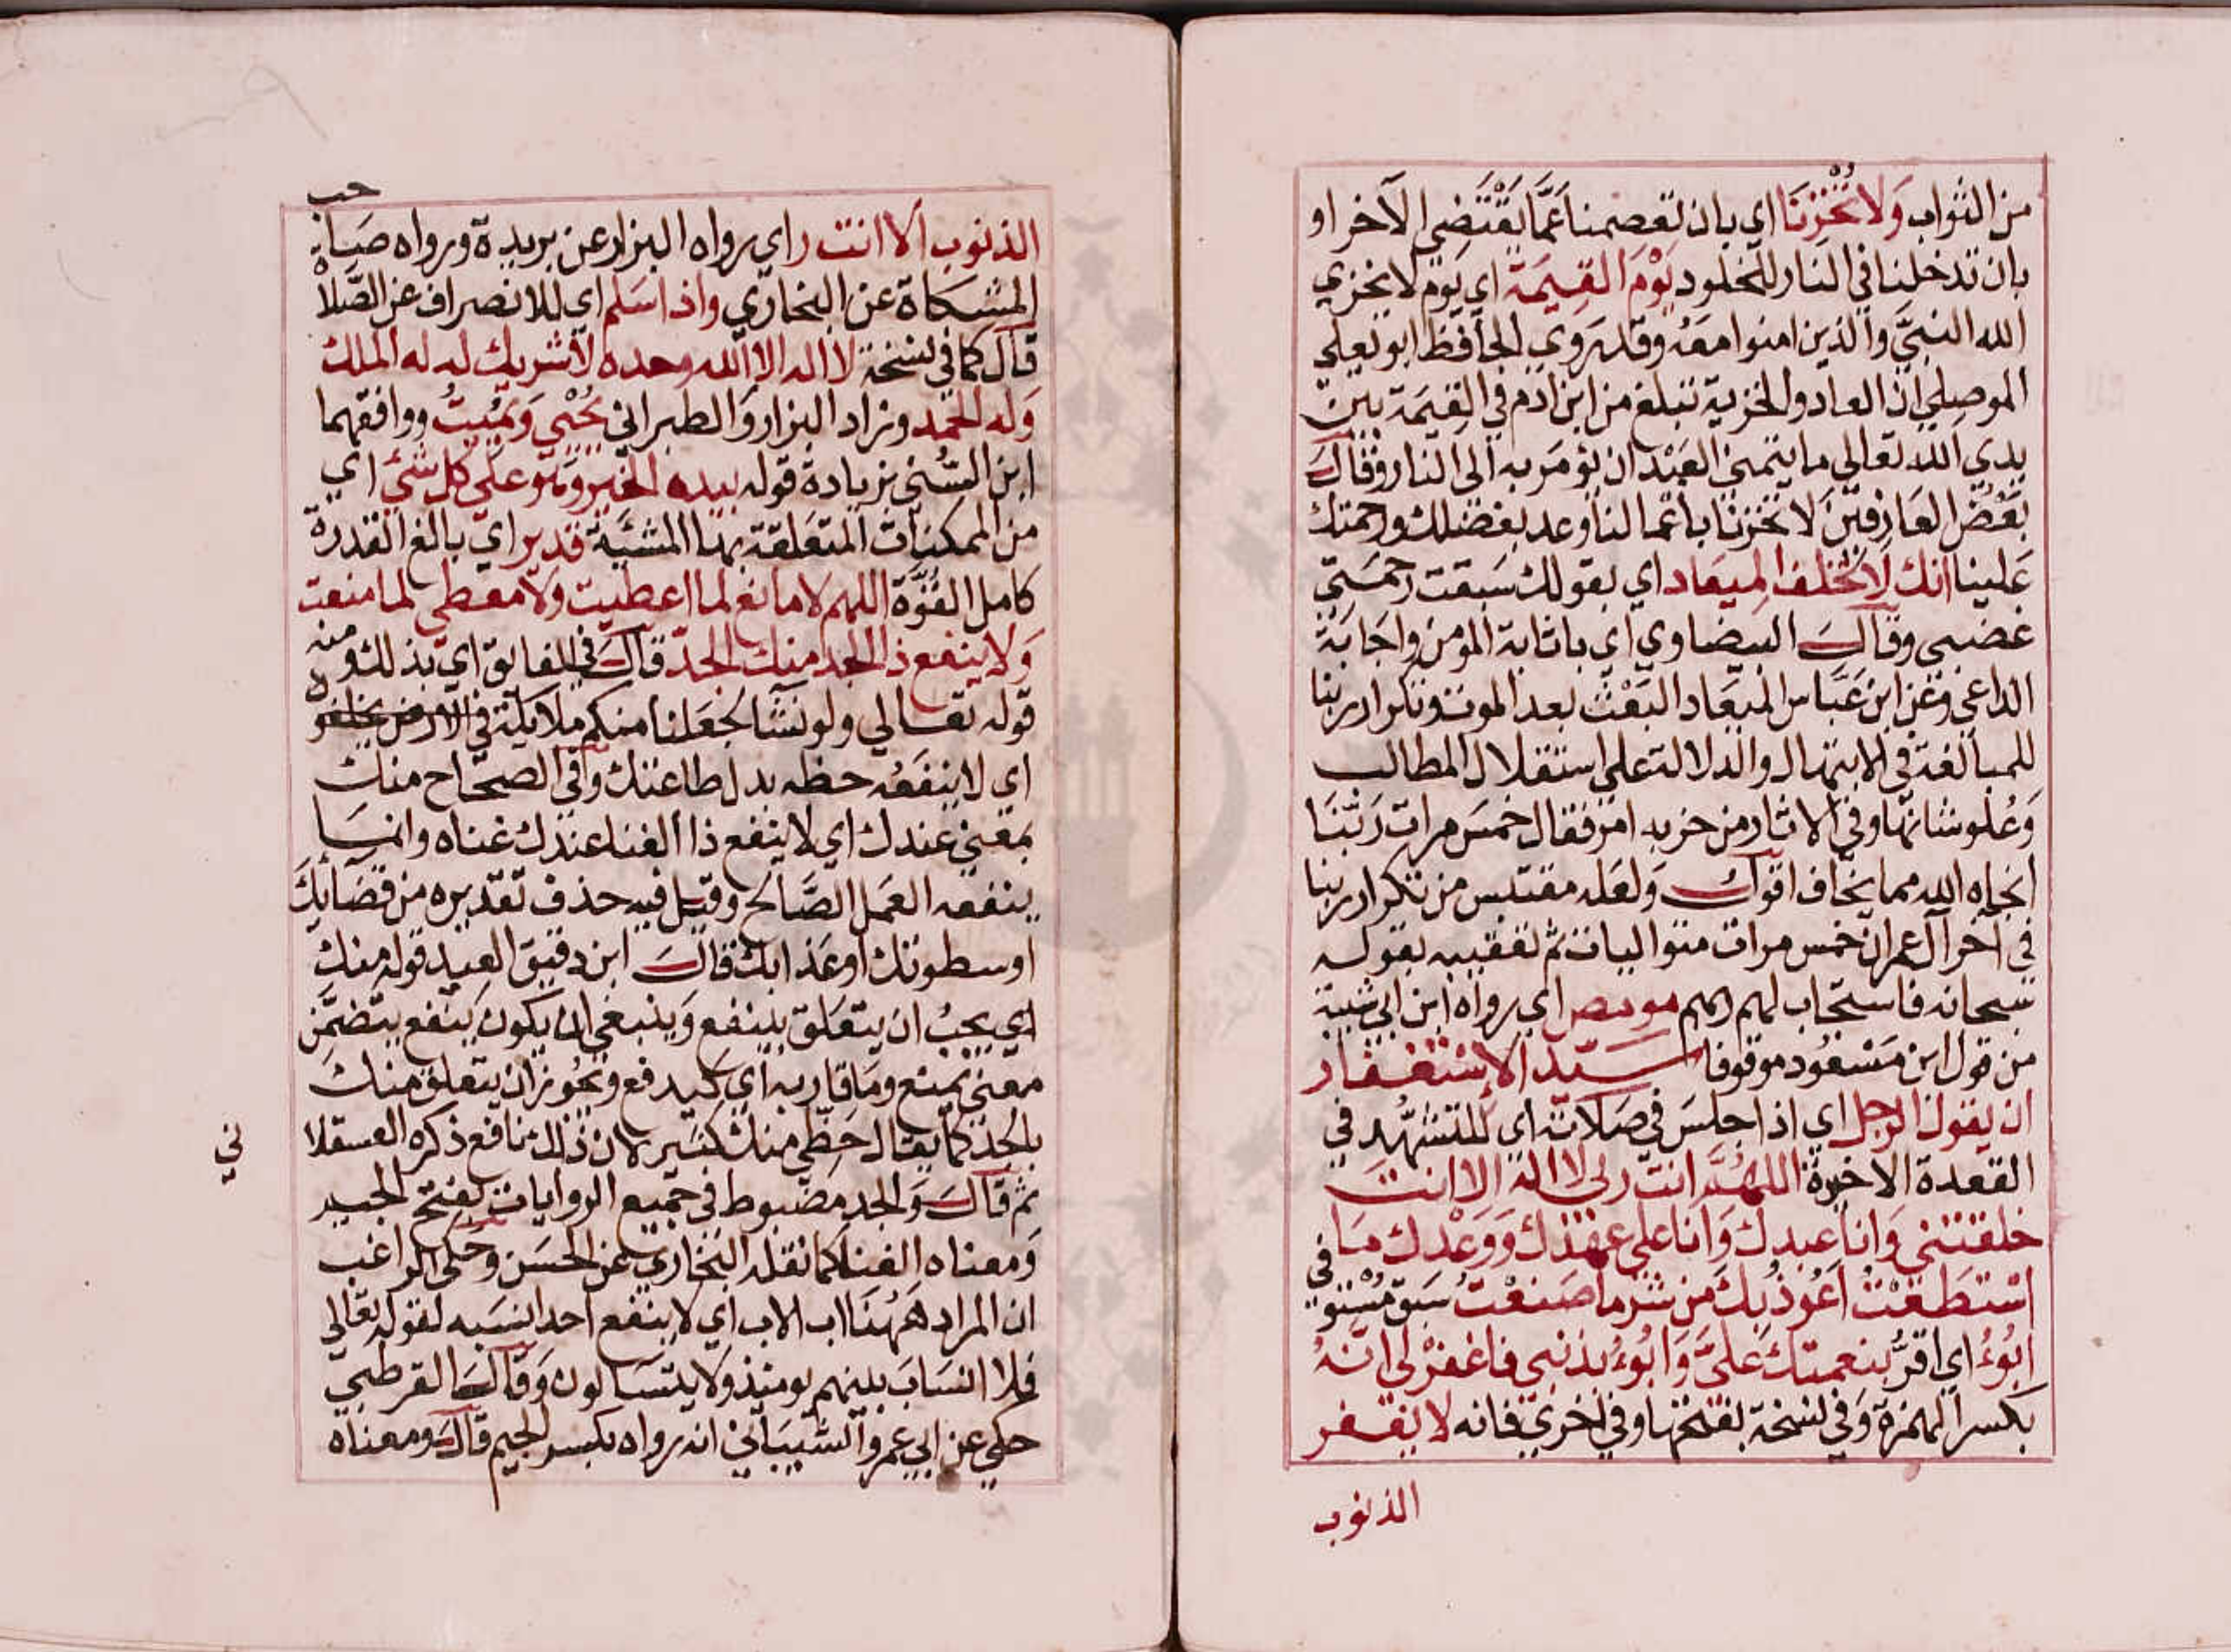 من الثواب وَلا تُخْزِنَا اي بان تعصمنا عَمَّا يَقْتَضِي الآخر او
بان تدخلنا في النار للخلود يَوْمَ القِيٰمَة اي يَوْم لا يخزي
الله النبيَّ والذين امنوا معَهُ وقد رَوي الحافظ ابو يعلي
الموصلي ان العار والخزية تبلغ من ابن ادم في القِيٰمَة بين
يدي الله تعالي ما يتمني العَبْد ان يؤمَر به الى النار وقالَ
بَعْضُ العَارفينَ لا تخزنَا باعمالنا وعد بفضلك ورحمتك
عَلينا انك لا تُخْلفُ المِيعَاد اي بقولك سَبقت رحمَتي
غضبي وقالَ البيضاوي اي باثابة المؤمن واجَابَة
الداعي وعن ابن عَبَّاس الميعَاد البَعْث بعد الموت وتكرار ربنا
للمبالغة في الابتهال والدلالة علي استقلال المطالب
وَعُلو شانها وفي الاثار من حزبه امر فقال خمسَ مرات رَبَّنَا
انجاه الله مما يخاف اقولُ وَلعَله مقتبس من تكرار ربنا
في آخر آل عمران خمس مرات متواليات ثم تعقيبه بقوله
سبحانه فاستجاب لهم ربهم مومص اي رواه ابن ابي شيبة
من قول ابن مَسْعُود موقوفا سَيّد الاِسْتغفار
ان يقول الرجل اي اذا جلسَ في صَلاته اي للتشهُّد في
القعدة الاخيرة اللهُمَّ انت ربي لا اله الا انت
خلقتني وَانا عبدك وَانا علي عهدك وَوَعْدك مَا
اسْتطَعْتُ اَعُوذ بكَ من شر ما صَنعْتُ سَبق مُسْتوفي
ابُوءُ اي اقرُّ بنعمتك عَليَّ وَابُوءُ بذنبي فاغفرْ لي انَّهُ
بكسر الهمزة وَفي نسخة بفتحها وفي اخري فانه لا يغفر
الذنوب
حب
الذنوب الا انت ر اي رواه البزار عن بريدة ورواه صَاحب
المشكاة عن البخاري واذا سَلم اي للانصراف عن الصَّلاة
قال كما في نسخة لا اله الا الله وحده لا شريك له له الملك
وَله الحمد وزاد البزار وَالطبراني يُحْيي وَيُمِيتُ ووافقهما
ابن السُّني بزيادة قوله بيده الخير وَهو علَي كل شئ اي
من الممكنات المتعَلقة بها المشيَّة قدير اي بالغ القدرة
كامل القُوَّة اللهم لا مانع لما اعطيت وَلا معطي لما منعت
وَلا ينفع ذا الجد منك الجدّ قالَ في الفايق اي بذلك ومنه
قوله تعالي ولو نشآ لجَعَلنا منكم ملائكة في الارض يخلفون
اي لا ينفَعُه حظه بدل طاعتك وفي الصحَاح منك
بمعني عندك اي لا ينفع ذا الغنا عندك غناه وانما
ينفعه العَمل الصَّالح وقيل فيه حذف تقديره من قضآئك
او سطوتك او عَذابك قالَ ابن دقيق العيد قوله منك
اي يجبُ ان يتعَلق بينفع وَينبغي ان يكون يَنفع يتضمَّن
معني يمنع ومَا قاربه اي كيدفع ويَجُوز ان يتعلق منك
بالجد كما يقال حَظّي منك كثير لان ذلك نافع ذكره العسقلا
ني
ثم قالَ وَالجد مضبوط في جميع الروايات بفتح الجيم
وَمعناه الغنا كما نقله البخاري عن الحسَن وحكي الراغب
ان المراد هَهُنَا اب الاب اي لا ينفع احدا نسَبه لقوله تعالي
فلا انسَابَ بينهم يومئذ وَلا يتسَالون وَقالَ القرطبي
حكي عن ابي عمرو الشيبَاني انه رواه بكسر الجيم قالَ ومعناه